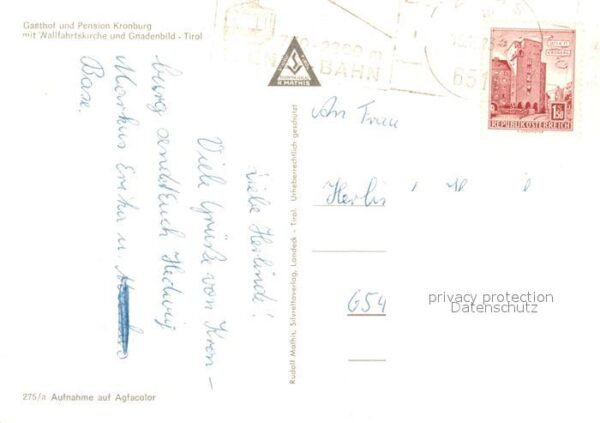 Gasthof und Pension Kronburg
mit Wallfahrtskirche und Gnadenbild - Tirol
BAHN
R. MATHIS
651
1.50
REPUBLIK ÖSTERREICH
Liebe Herlinde!
Viele Grüße von Kron-
burg sendet Euch Hedwig
Markus Erika u.
Base.
An Frau
Herli
654
privacy protection
Datenschutz
Rudolf Mathis, Silvrettaverlag, Landeck - Tirol. Urheberrechtlich geschützt
275/a Aufnahme auf Agfacolor